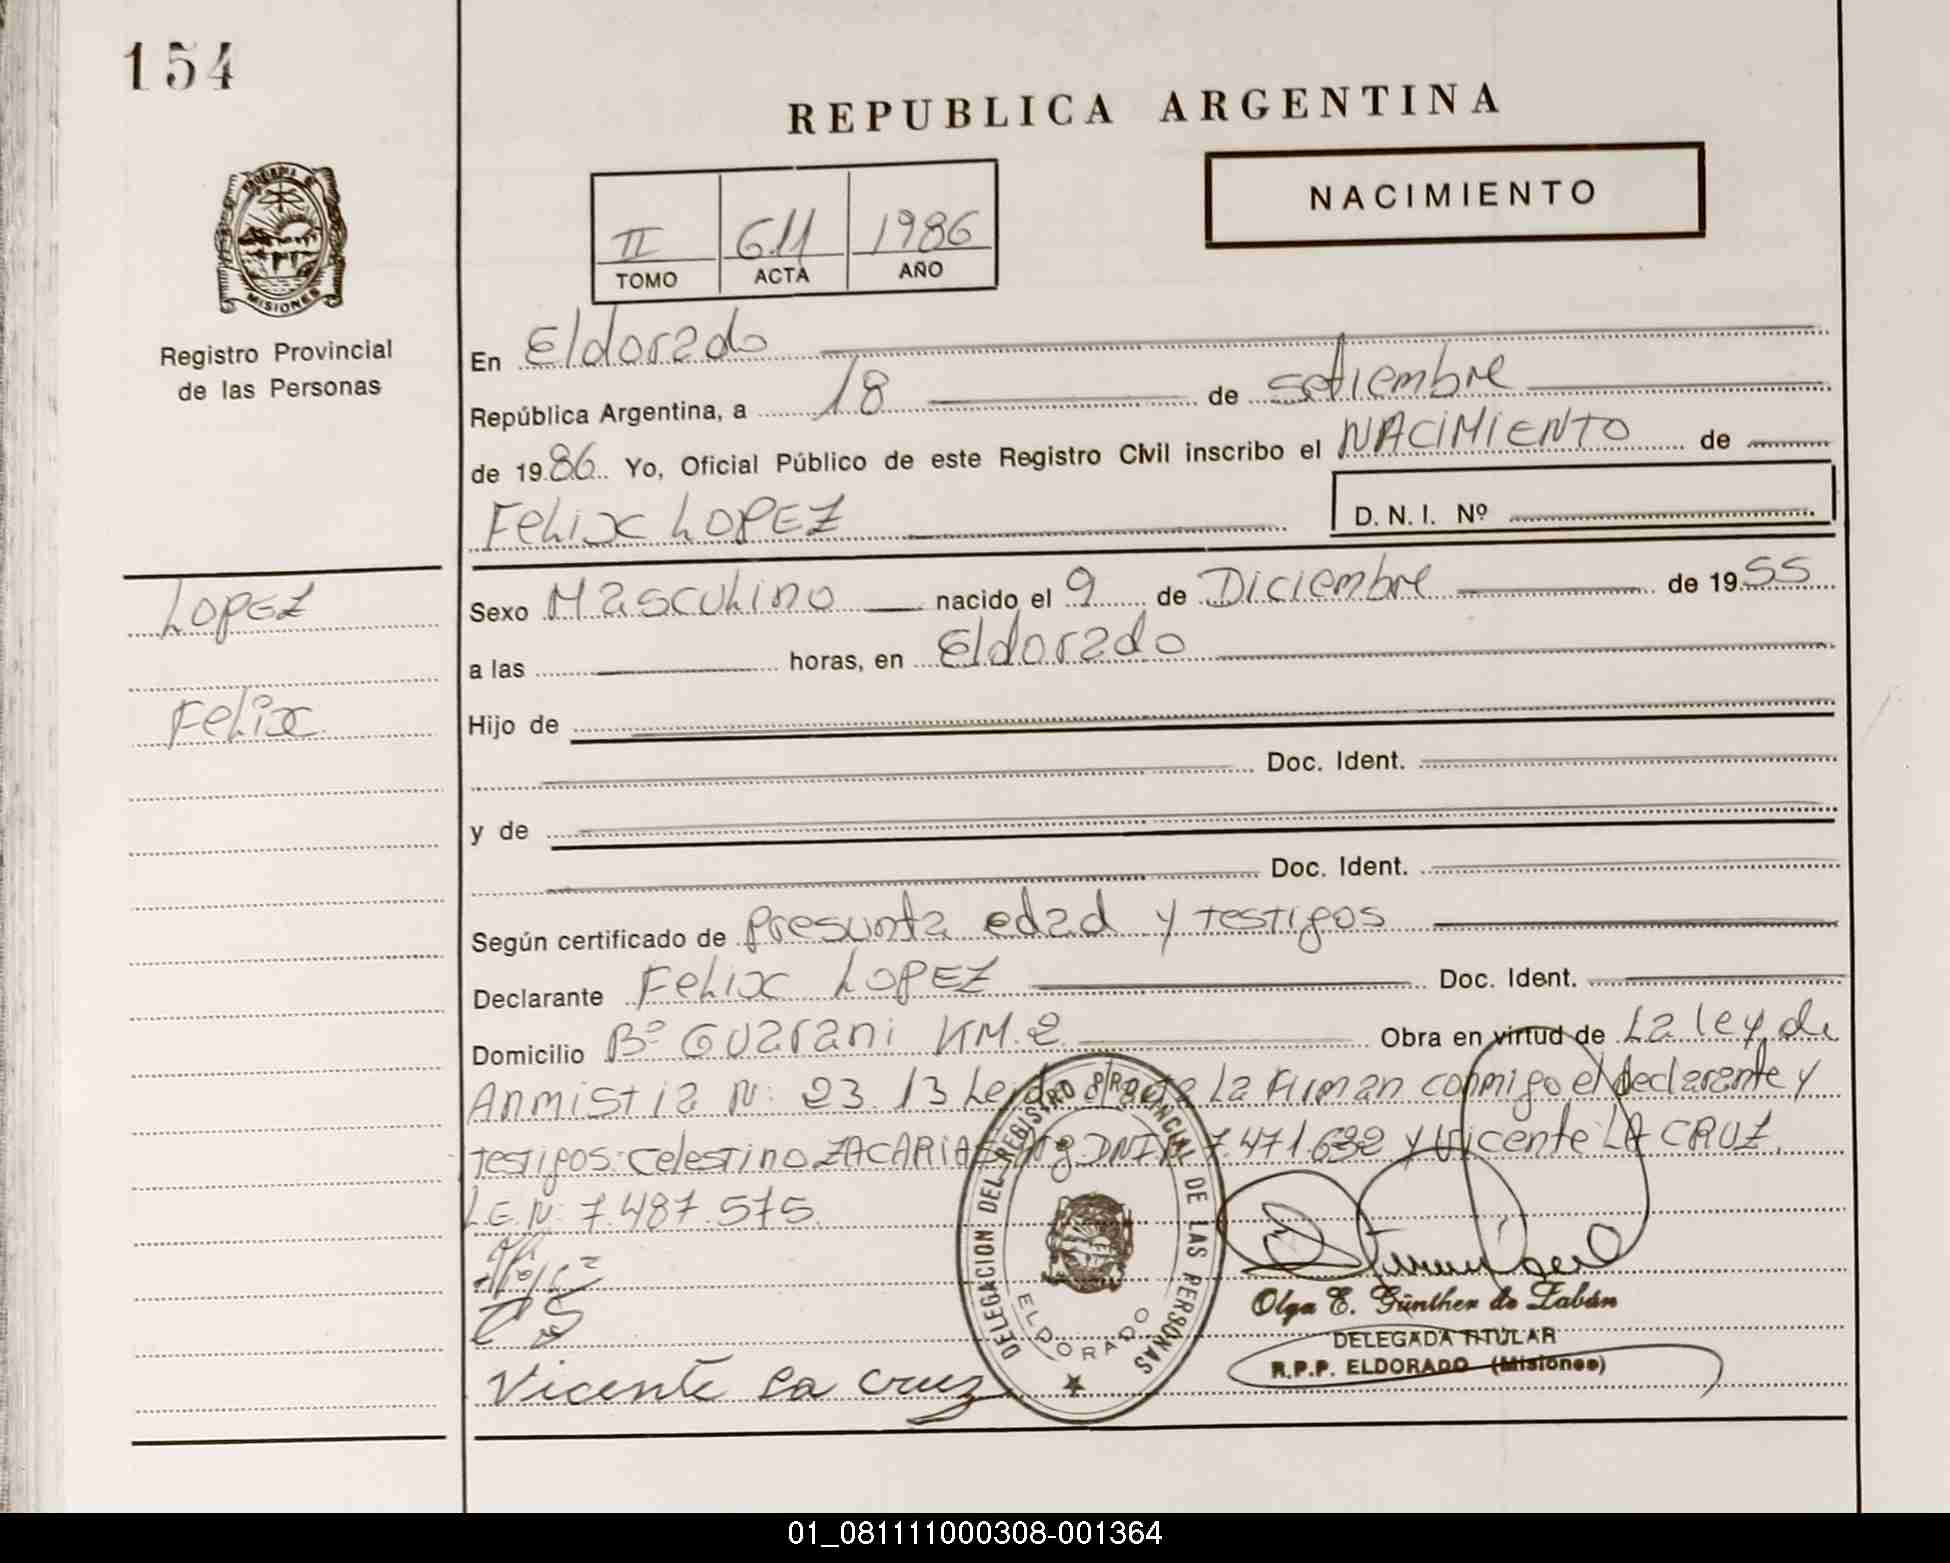 154
REPUBLICA ARGENTINA
NACIMIENTO
II 611 1986
TOMO ACTA AÑO
PROVINCIA DE
MISIONES
Registro Provincial
de las Personas
En Eldorado
República Argentina, a 18 de setiembre
de 1986 Yo, Oficial Público de este Registro Civil inscribo el NACIMIENTO de
FELIX LOPEZ D. N. I. Nº
LOPEZ
Felix
Sexo Masculino nacido el 9 de Diciembre de 1955
a las horas, en Eldorado
Hijo de
Doc. Ident.
y de
Doc. Ident.
Según certificado de presunta edad y testigos
Declarante FELIX LOPEZ Doc. Ident.
Domicilio Bº Guarani KM. 2 Obra en virtud de La ley de
Anmistia N: 23.13 Leida el acta La Firman conmigo el declarante y
testigos: Celestino ZACARIAS DNI N 7.471.632 y Vicente LA CRUZ.
L.E.N: 7.487.575.
DELEGACION DEL REGISTRO PROVINCIAL DE LAS PERSONAS
ELDORADO
Vicente La Cruz
Olga E. Günther de Zabán
DELEGADA TITULAR
R.P.P. ELDORADO (Misiones)
01_081111000308-001364